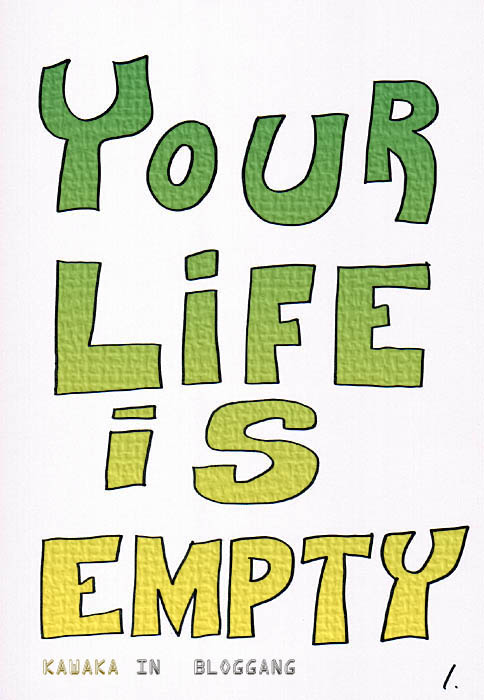 YOUR
LiFE
iS
EMPTY
KAWAKA IN BLOGGANG
1.